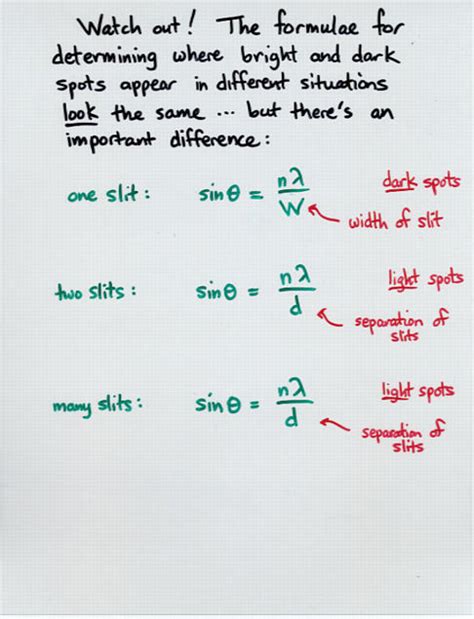 Watch out! The formulae for
determining where bright and dark
spots appear in different situations
look the same ... but there's an
important difference:
one slit: sinθ = nλ/W dark spots
width of slit
two slits: sinθ = nλ/d light spots
separation of
slits
many slits: sinθ = nλ/d light spots
separation of
slits